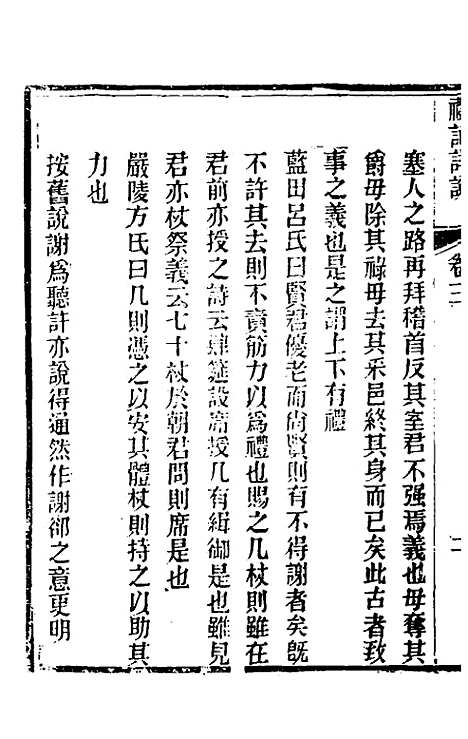 禮記詳說
卷三
塞人之路再拜稽首反其室君不强焉義也毋奪其
爵毋除其祿毋去其采邑終其身而已矣此古者致
事之義也是之謂上下有禮
藍田呂氏曰賢君優老而尚賢則有不得謝者矣旣
不許其去則不責筋力以爲禮也賜之几杖則雖在
君前亦授之詩云肆筵設席授几有緝御是也雖見
君亦杖祭義云七十杖於朝君問則席是也
嚴陵方氏曰几則憑之以安其體杖則持之以助其
力也
按舊說謝爲聽許亦說得通然作謝卻之意更明